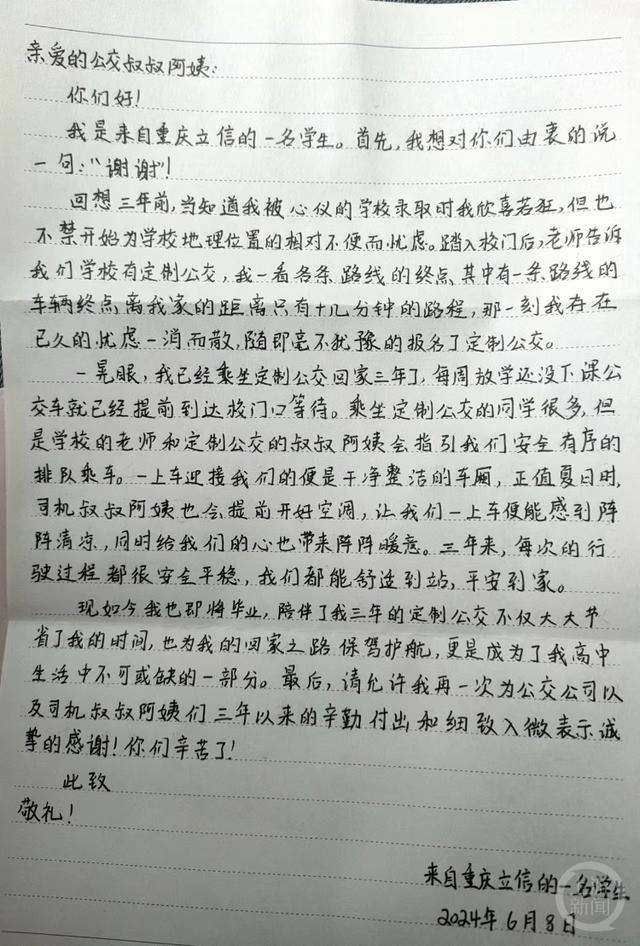 亲爱的公交叔叔阿姨:
你们好!
我是来自重庆立信的一名学生。首先,我想对你们由衷的说
一句:“谢谢”!
回想三年前,当知道我被心仪的学校录取时我欣喜若狂,但也
不禁开始为学校地理位置的相对不便而忧虑。踏入校门后,老师告诉
我们学校有定制公交,我一看各条路线的终点,其中有一条路线的
车辆终点离我家的距离只有十几分钟的路程,那一刻我存在
已久的忧虑一消而散,随即毫不犹豫的报名了定制公交。
一晃眼,我已经乘坐定制公交回家三年了,每周放学还没下课公
交车就已经提前到达校门口等待。乘坐定制公交的同学很多,但
是学校的老师和定制公交的叔叔阿姨会指引我们安全有序的
排队乘车。一上车迎接我们的便是干净整洁的车厢,正值夏日时,
司机叔叔阿姨也会提前开好空调,让我们一上车便能感到阵
阵清凉,同时给我们的心也带来阵阵暖意。三年来,每次的行
驶过程都很安全平稳,我们都能舒适到站,平安到家。
现如今我也即将毕业,陪伴了我三年的定制公交不仅大大节
省了我的时间,也为我的回家之路保驾护航,更是成为了我高中
生活中不可或缺的一部分。最后,请允许我再一次为公交公司以
及司机叔叔阿姨们三年以来的辛勤付出和细致入微表示诚
挚的感谢!你们辛苦了!
此致
敬礼!
来自重庆立信的一名学生
2024年6月8日
新闻